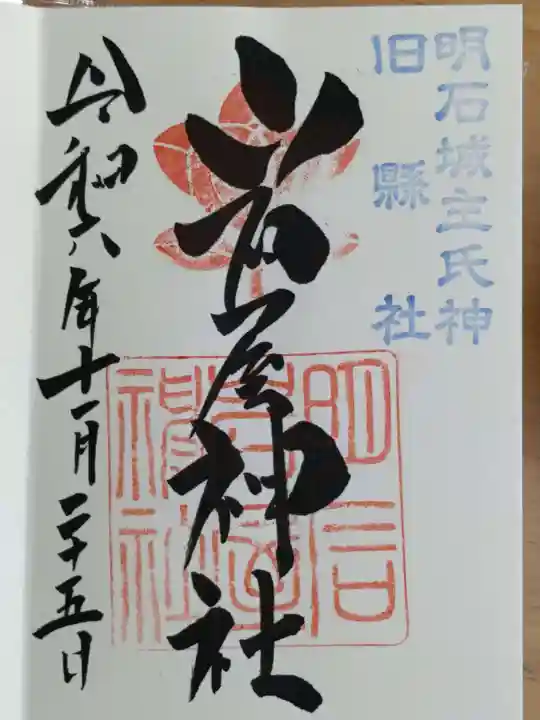 明石城主氏神
旧縣社
岩屋神社
令和六年十一月二十五日
明石
岩屋
神社